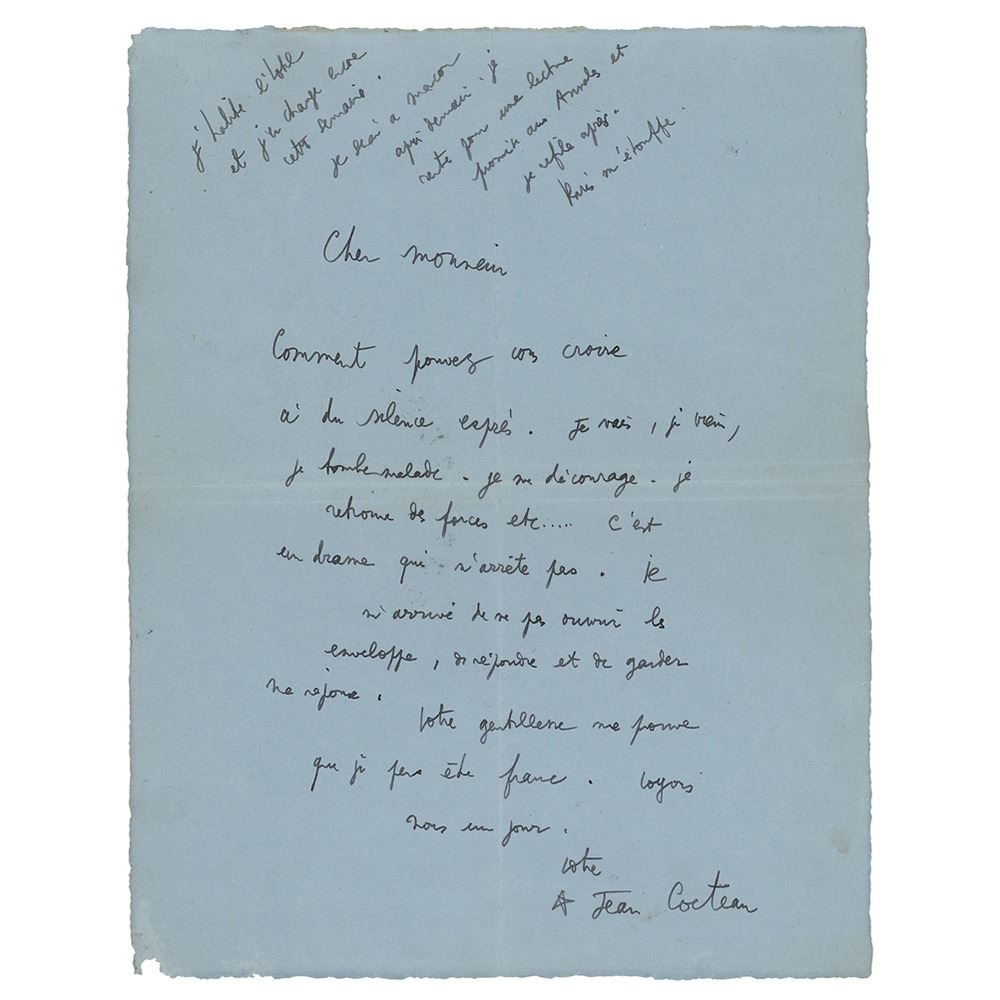 j'habite l'hotel
et j'en change encore
cette semaine.
je serai a macon
après demain. je
reste pour une lecture
promise aux Annales et
je refile après.
Paris m'étouffe.
Cher monsieur
Comment pouvez vous croire
à du silence exprés. Je vais, je viens,
je tombe malade. je me décourage. je
retrouve des forces etc..... C'est
un drame qui n'arrète pas. Je
m'arrive de ne pas ouvrir les
enveloppe, de répondre et de garder
ma réponse.
Votre gentillesse me prouve
que je peux être franc. Voyons
nous un jour.
votre
Jean Cocteau